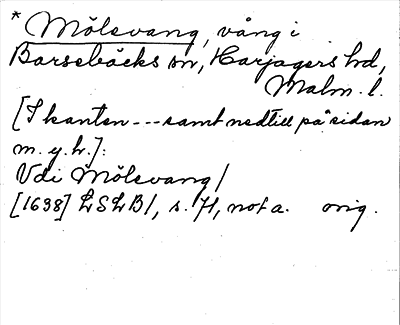 * Mölsvang, vång i
Barsebäcks sn, Harjagers hd,
Malm. l.
[I kanten --- samt nedtill på sidan
m. y. h.]:
Vdi Mölsvang/
[1638] LSLB1, s. 71, not a. orig.